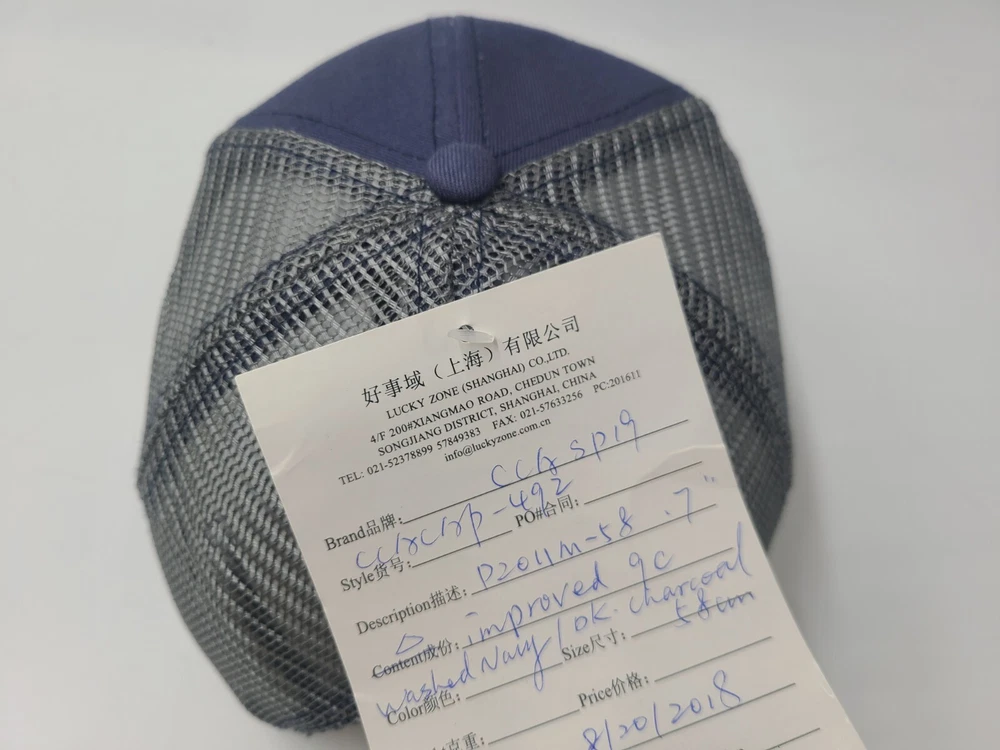 好事域（上海）有限公司
LUCKY ZONE (SHANGHAI) CO.,LTD.
4/F 200#XIANGMAO ROAD, CHEDUN TOWN
SONGJIANG DISTRICT, SHANGHAI, CHINA
TEL: 021-52378899 57849383 FAX: 021-57633256 PC:201611
info@luckyzone.com.cn
Brand品牌: SP19
Style货号: -492 PO#合同:
Description描述: P2011M-58 .7"
Content成份: improved qc
Color颜色: washed Navy / DK. charcoal Size尺寸: 58cm
克重: Price价格:
8/20/2018